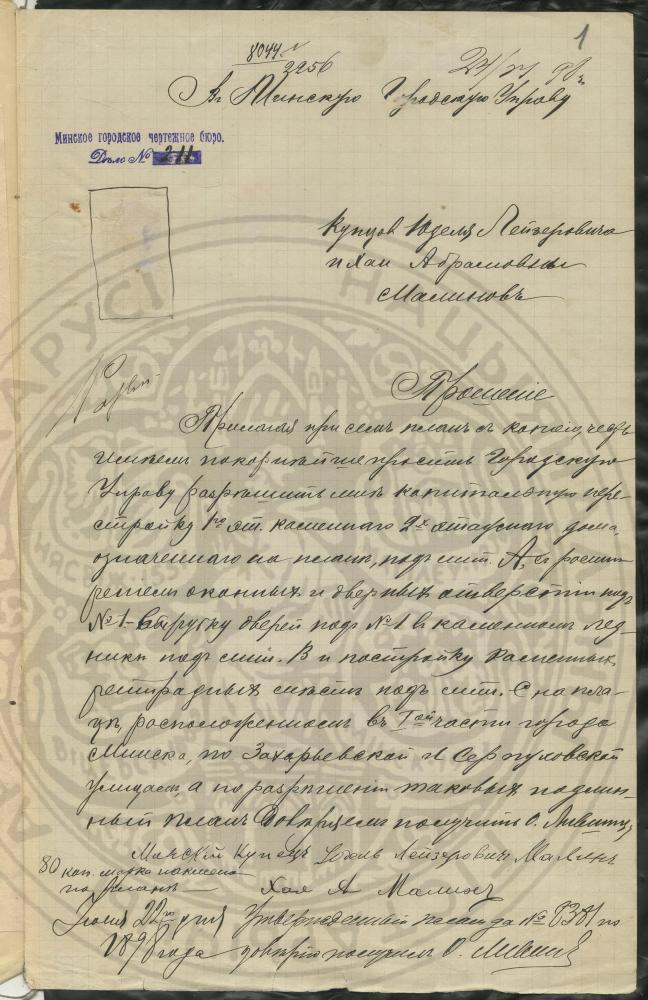 1
8044
2256
Въ Минскую Городскую Управу
Минское городское чертежное бюро.
Дѣло № 211
Купцовъ Юделя Лейзеровича
и Хаи Абрамовны
Малиновъ
Прошеніе
Прилагая при семъ планъ съ копіею, честь
имѣемъ покорнѣйше просить Городскую
Управу разрѣшить намъ капитальную пере-
стройку 1го эт. каменнаго 2х этажнаго дома,
означеннаго на планѣ, подъ лит. А, съ расши-
реніемъ оконныхъ и дверныхъ отверстій подъ
№ 1 - вырубку дверей подъ № 1 въ каменномъ лед-
никѣ подъ лит. В и постройку каменныхъ
ретирадныхъ мѣстъ подъ лит. С на пла-
цѣ, расположенномъ въ Iой части города
Минска, по Захарьевской и Серпуховской
улицамъ, а по разрѣшеніи таковыхъ подлин-
ный планъ довѣряемъ получить О.
Минскій Купецъ Юдель Лейзеровичъ Малинъ
80 коп. марка наклеена
на планѣ
Хая А Малинъ
Іюля 22го дня
1898 года
Утвержденный планъ за № 8381 по
довѣрію получилъ О.
НАЦЫ
АРУСІ